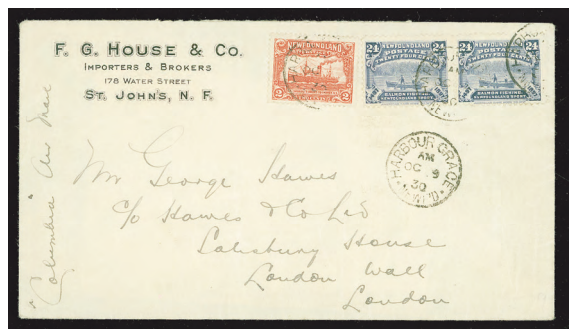 F. G. HOUSE & CO.
IMPORTERS & BROKERS
178 WATER STREET
ST. JOHN'S, N. F.
NEWFOUNDLAND
2 2
24 NEWFOUNDLAND 24
POSTAGE
TWENTY FOUR CENTS
SALMON FISHING
NEWFOUNDLAND
24 NEWFOUNDLAND 24
POSTAGE
TWENTY FOUR CENTS
SALMON FISHING
NEWFOUNDLAND
HARBOUR GRACE
AM
OC 9
30
NEWF'D
"Columbia" Air Mail
Mr George Hawes
c/o Hawes & Co Ltd
Salisbury House
London Wall
London